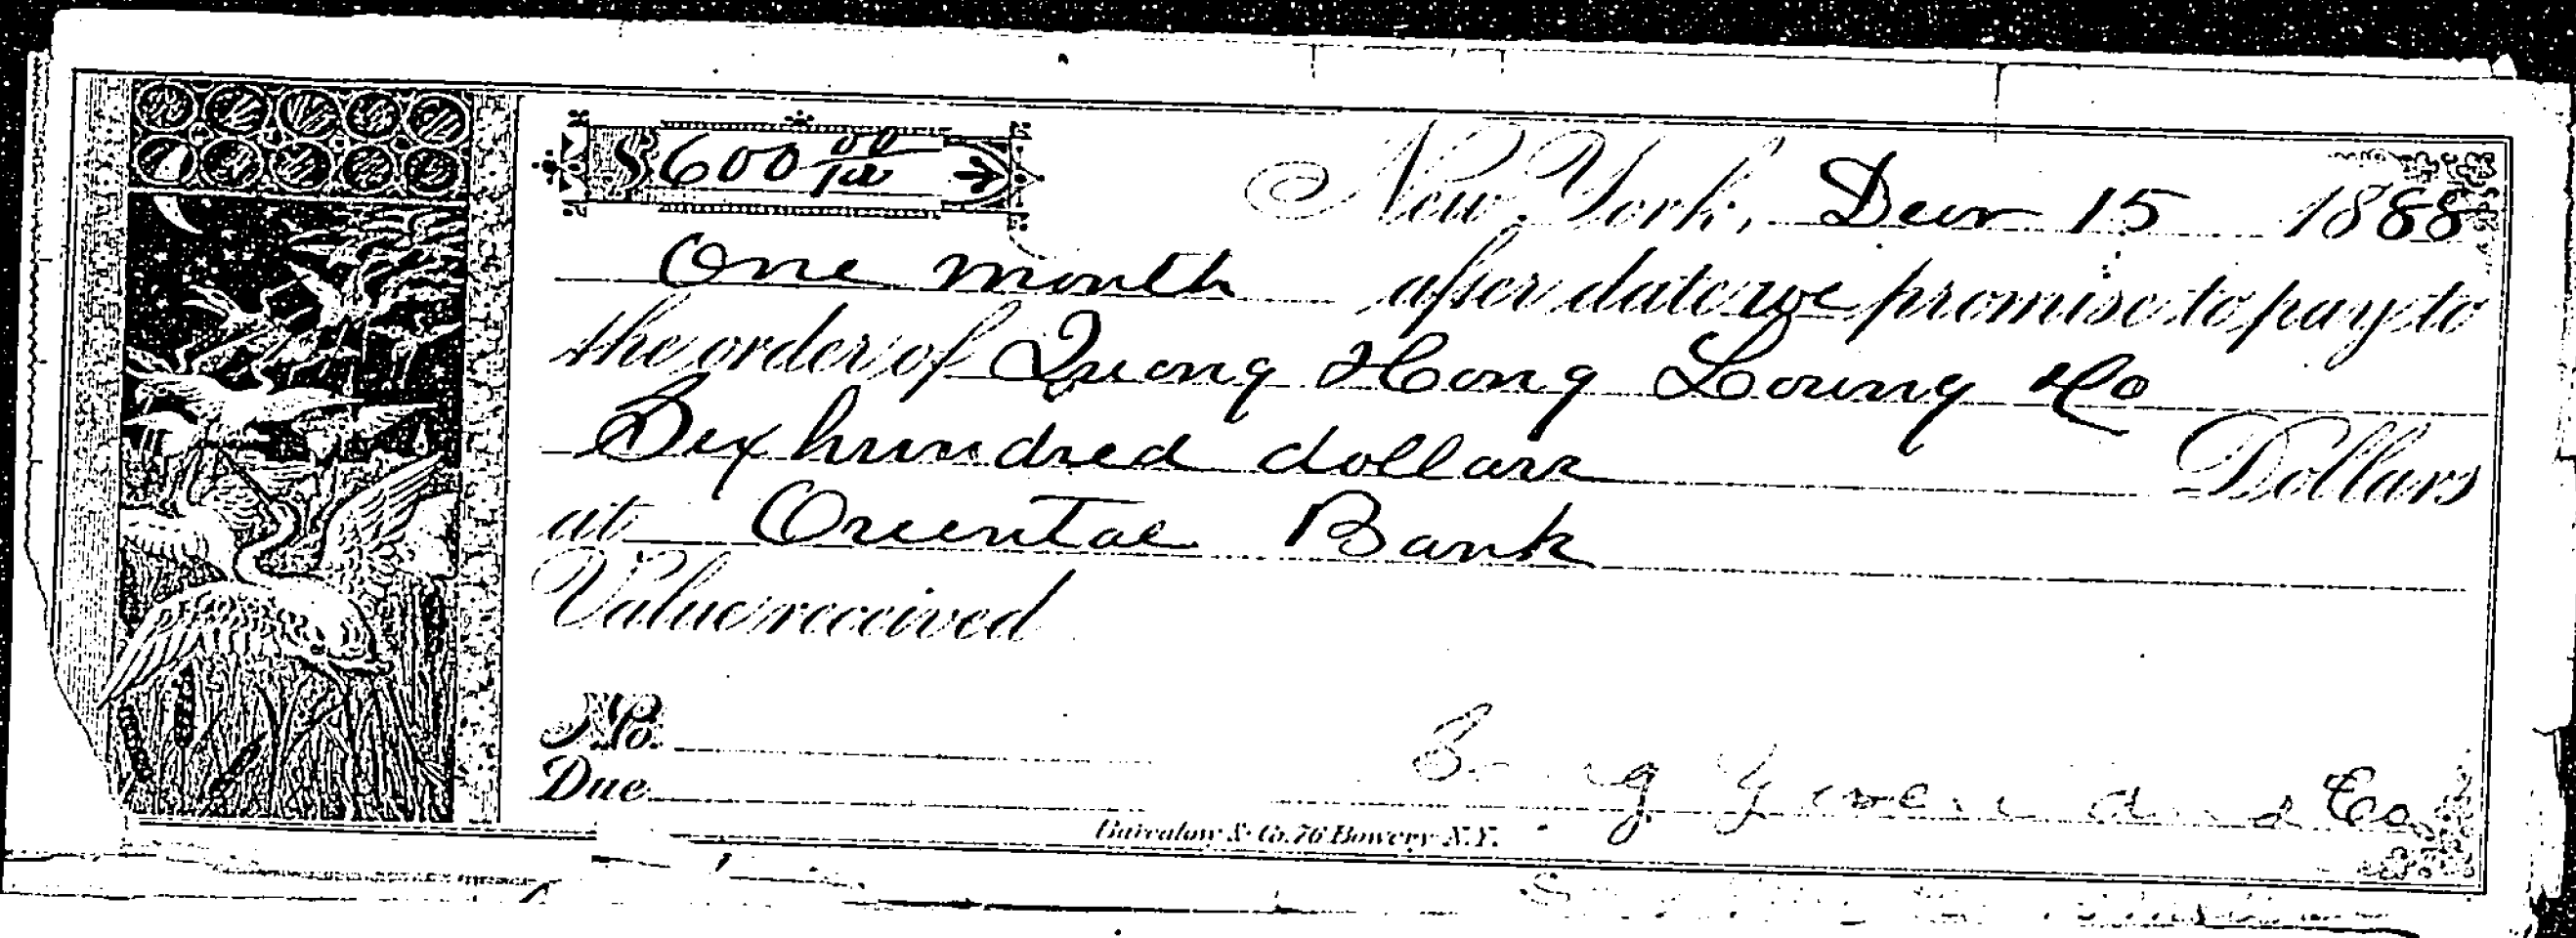 $600 00/100
New York, Decr 15 1888
One month after date we promise to pay to
the order of Quong Hong Loung & Co
Six hundred dollars Dollars
at Oriental Bank
Value received
No.
Due
and Co
& Co. 76 Bowery N.Y.